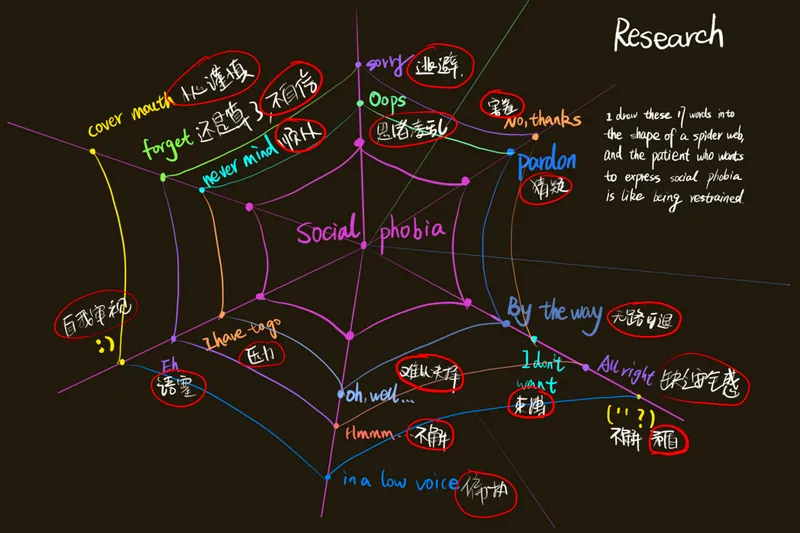 Research
I draw these 17 words into
the shape of a spider web,
and the patient who wants
to express social phobia
is like being restrained.
sorry 逃避.
Oops
思绪紊乱
害羞
No, thanks
pardon
猜疑
cover mouth 小心谨慎
forget 还是算了,不自信
never mind 顺从
Social phobia
自我审视
:)
Eh
语塞
I have to go
压力
oh, well...
难以来择
Hmmm... 不解
in a low voice
By the way 无路可退
I don't
want
束缚
All right 缺乏安全感
(''?)
不解